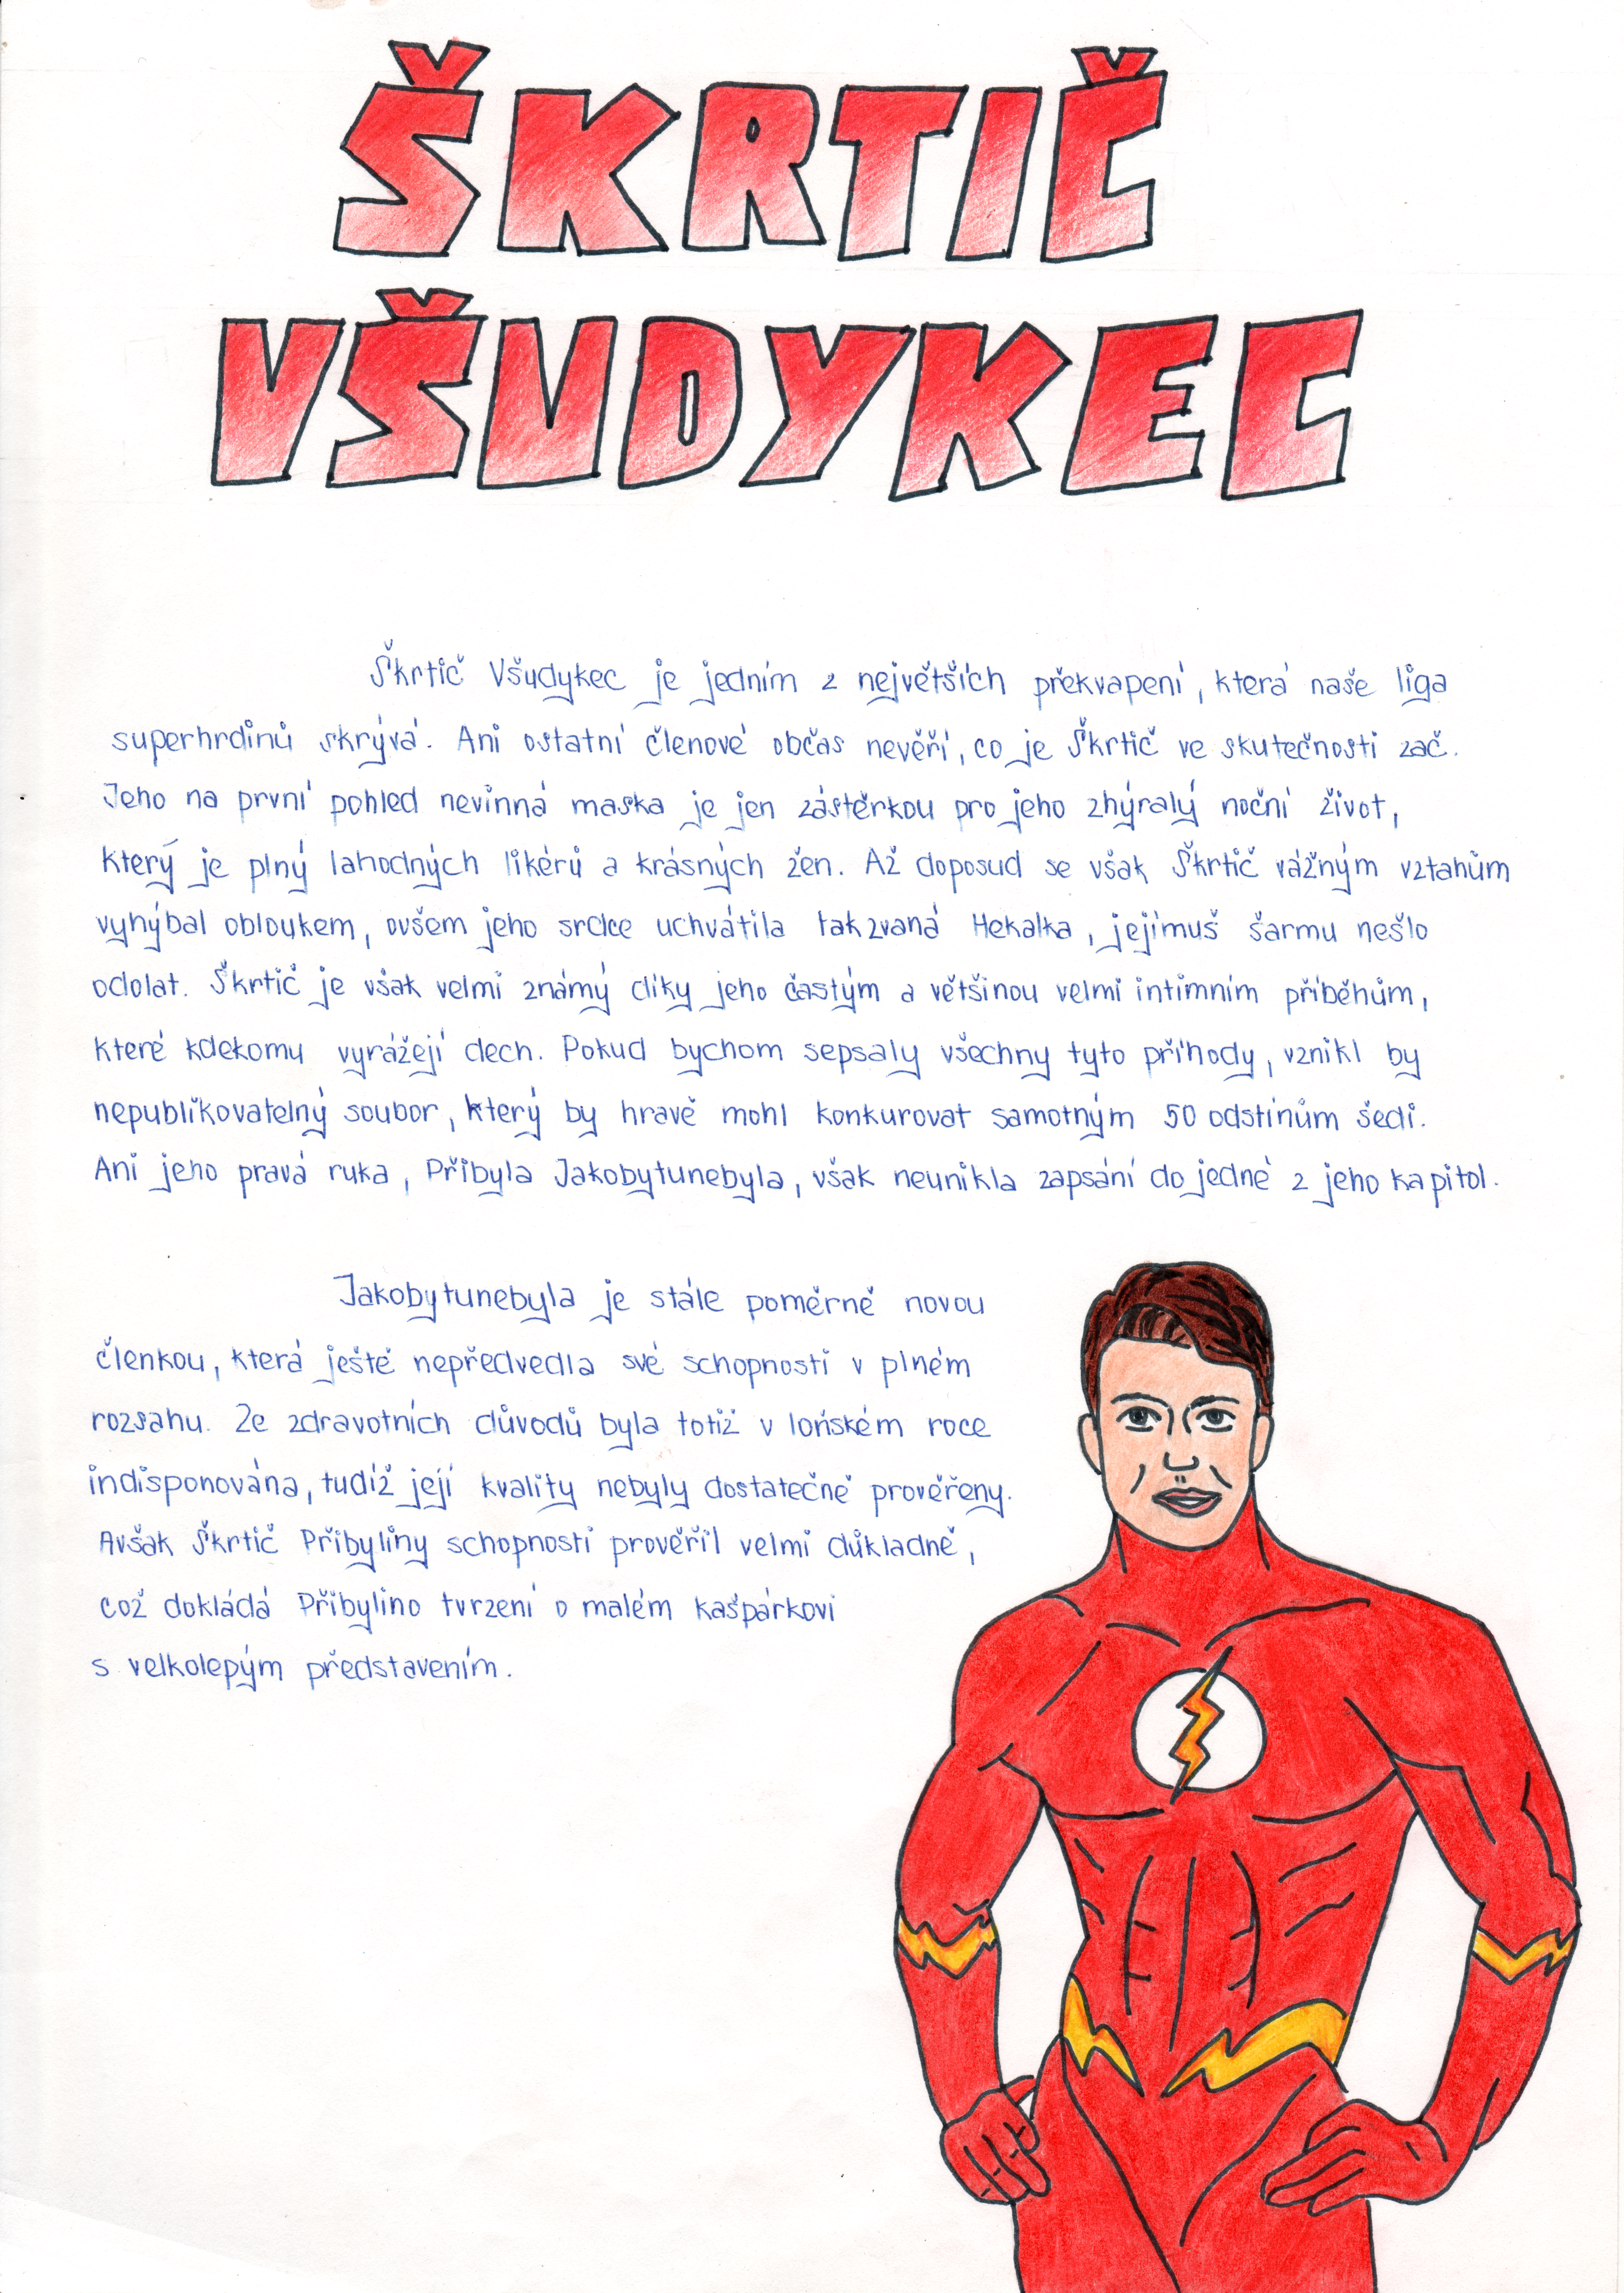 ŠKRTIČ
VŠUDYKEC
Škrtič Všudykec je jedním z největších překvapení, která naše liga
superhrdinů skrývá. Ani ostatní členové občas nevěří, co je Škrtič ve skutečnosti zač.
Jeho na první pohled nevinná maska je jen zástěrkou pro jeho zhýralý noční život,
který je plný lahodných likérů a krásných žen. Až doposud se však Škrtič vážným vztahům
vyhýbal obloukem, ovšem jeho srdce uchvátila takzvaná Hekalka, jejímuš šarmu nešlo
odolat. Škrtič je však velmi známý díky jeho častým a většinou velmi intimním příběhům,
které kdekomu vyrážejí dech. Pokud bychom sepsaly všechny tyto příhody, vznikl by
nepublikovatelný soubor, který by hravě mohl konkurovat samotným 50 odstínům šedi.
Ani jeho pravá ruka, Přibyla Jakobytunebyla, však neunikla zapsání do jedné z jeho kapitol.
Jakobytunebyla je stále poměrně novou
členkou, která ještě nepředvedla své schopnosti v plném
rozsahu. Ze zdravotních důvodů byla totiž v loňském roce
indisponována, tudíž její kvality nebyly dostatečně prověřeny.
Avšak Škrtič Přibyliny schopnosti prověřil velmi důkladně,
což dokládá Přibylino tvrzení o malém kašpárkovi
s velkolepým představením.